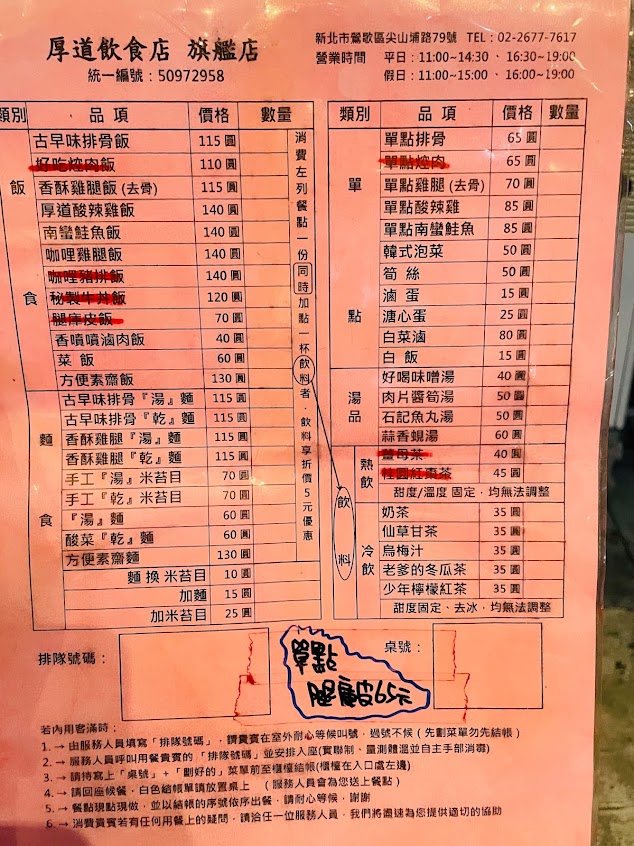 厚道飲食店 旗艦店
統一編號：50972958
新北市鶯歌區尖山埔路79號 TEL：02-2677-7617
營業時間 平日：11:00~14:30 、 16:30~19:00
假日：11:00~15:00 、 16:00~19:00
類別 品項 價格 數量
飯食
古早味排骨飯 115圓
好吃焢肉飯 110圓
香酥雞腿飯(去骨) 115圓
厚道酸辣雞飯 140圓
南蠻鮭魚飯 140圓
咖哩雞腿飯 140圓
咖哩豬排飯 140圓
秘製牛丼飯 120圓
腿庫皮飯 70圓
香噴噴滷肉飯 40圓
菜飯 60圓
方便素齋飯 130圓
麵食
古早味排骨『湯』麵 115圓
古早味排骨『乾』麵 115圓
香酥雞腿『湯』麵 115圓
香酥雞腿『乾』麵 115圓
手工『湯』米苔目 70圓
手工『乾』米苔目 70圓
『湯』麵 60圓
酸菜『乾』麵 60圓
方便素齋麵 130圓
麵換米苔目 10圓
加麵 15圓
加米苔目 25圓
消費左列餐點一份同時加點一杯飲料者，飲料享折價5元優惠
類別 品項 價格 數量
單點
單點排骨 65圓
單點焢肉 65圓
單點雞腿(去骨) 70圓
單點酸辣雞 85圓
單點南蠻鮭魚 85圓
韓式泡菜 50圓
筍絲 50圓
滷蛋 15圓
溏心蛋 25圓
白菜滷 80圓
白飯 15圓
湯品
好喝味噌湯 40圓
肉片醬筍湯 50圓
石記魚丸湯 50圓
蒜香蜆湯 60圓
飲料
熱飲
薑母茶 40圓
桂圓紅棗茶 45圓
甜度/溫度 固定，均無法調整
冷飲
奶茶 35圓
仙草甘茶 35圓
烏梅汁 35圓
老爹的冬瓜茶 35圓
少年檸檬紅茶 35圓
甜度固定、去冰，均無法調整
排隊號碼：
單點
腿庫皮65元
桌號：
若內用客滿時：
1.→由服務人員填寫「排隊號碼」，請貴賓在室外耐心等候叫號，過號不候（先劃菜單勿先結帳）
2.→服務人員呼叫用餐貴賓的「排隊號碼」並安排入座(實聯制、量測體溫並自主手部消毒)
3.→請持寫上「桌號」+「劃好的」菜單前至櫃檯結帳(櫃檯在入口處左邊)
4.→請回座候餐，白色結帳單請放置桌上 （服務人員會為您送上餐點）
5.→餐點現點現做，並以結帳的序號依序出餐，請耐心等候，謝謝
6.→消費貴賓若有任何用餐上的疑問，請洽任一位服務人員，我們將盡速為您提供適切的協助